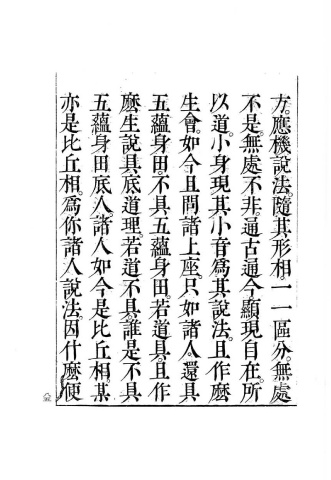 方。應機說法。隨其形相。一一區分。無處
不是。無處不非。通古通今顯現自在。所
以道。小身現其小音。為其說法。且作麼
生會。如今且問諸上座。只如諸人。還具
五蘊身田。不具五蘊身田。若道具。且作
麼生說具底道理。若道不具。誰是不具
五蘊身田底人。諸人如今是比丘相。某
亦是比丘相。為你諸人說法。因什麼便